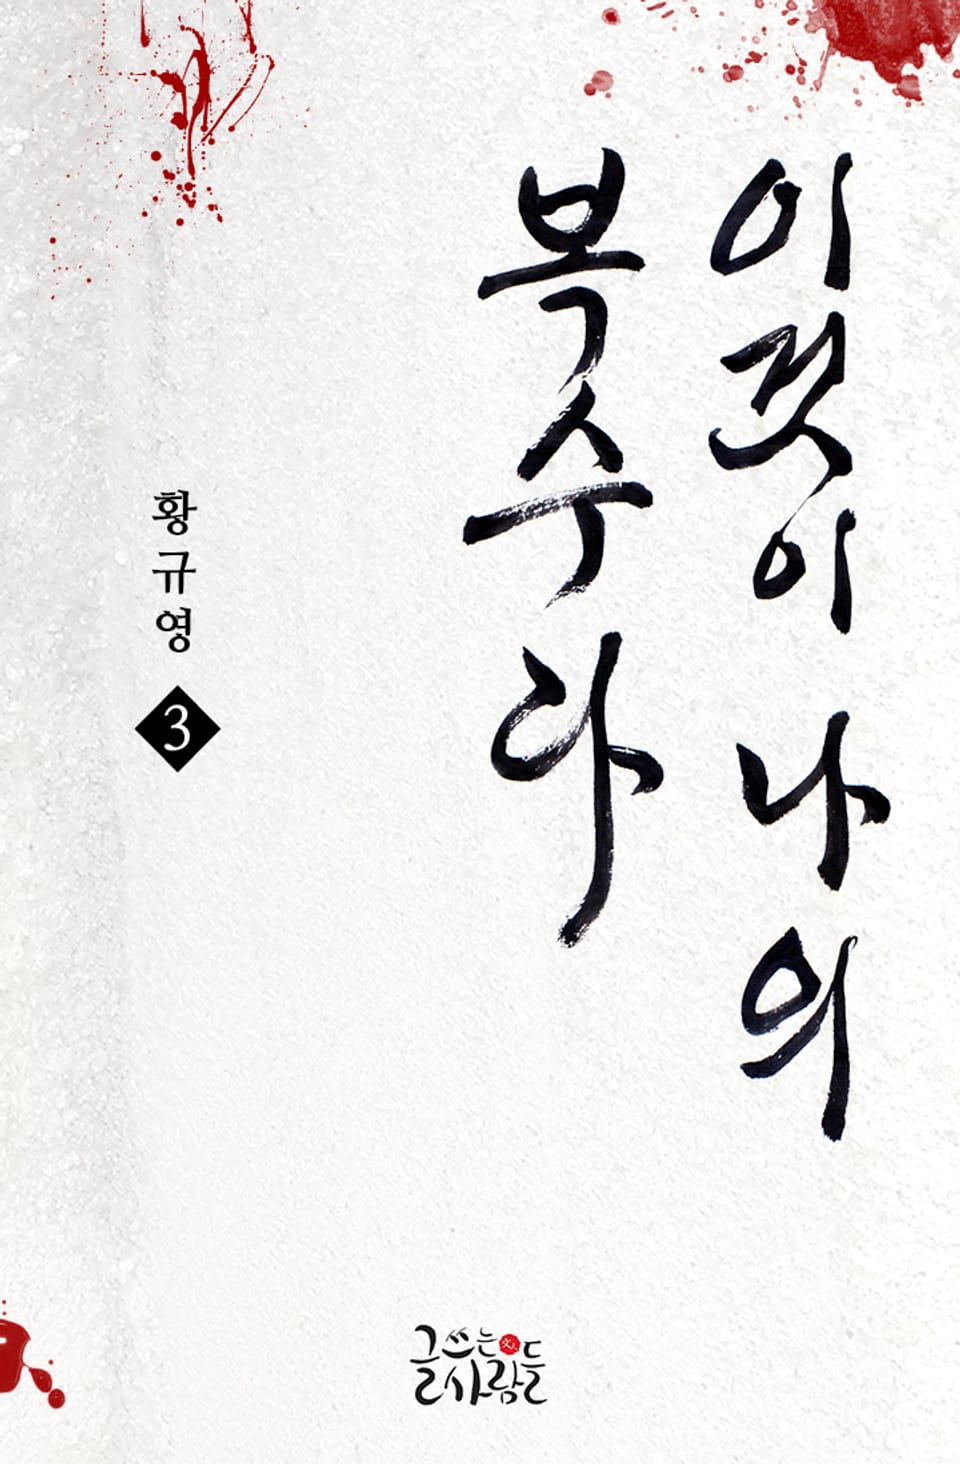 이것이 나의
복수다
황규영
3
글쓰는
사람들